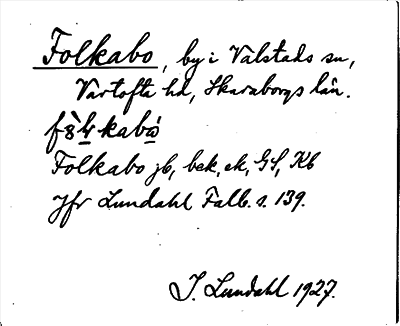 Folkabo, by i Valstads sn,
Vartofta hd, Skaraborgs län.
Folkabo jb, bek, ek, GS, Kb
Jfr Lundahl Falb. s. 139.
I. Lundahl 1927.